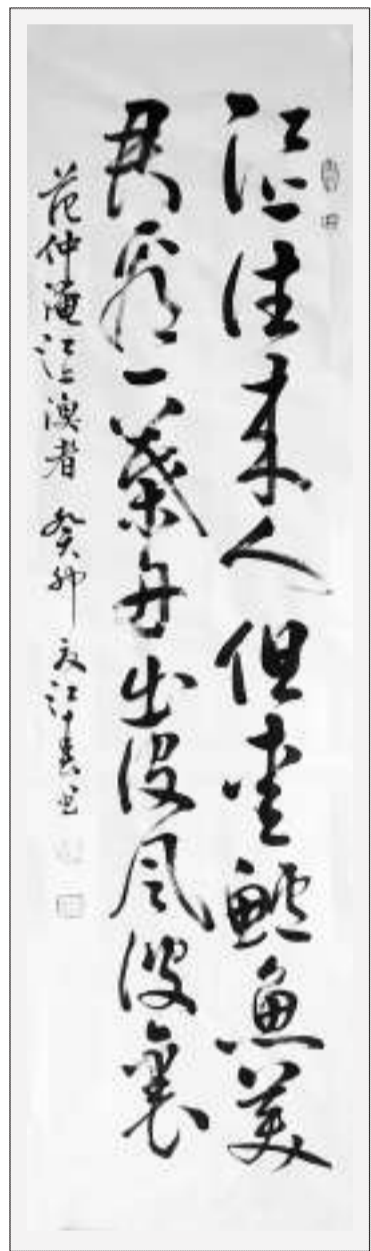 江上往来人但爱鲈鱼美
君看一叶舟出没风波里
范仲淹江上渔者 癸卯 江 书